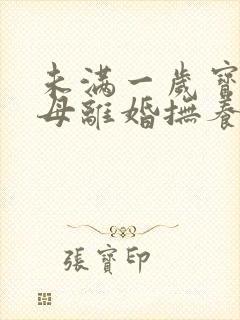 未滿一歲寶
母離婚撫養
張寶印